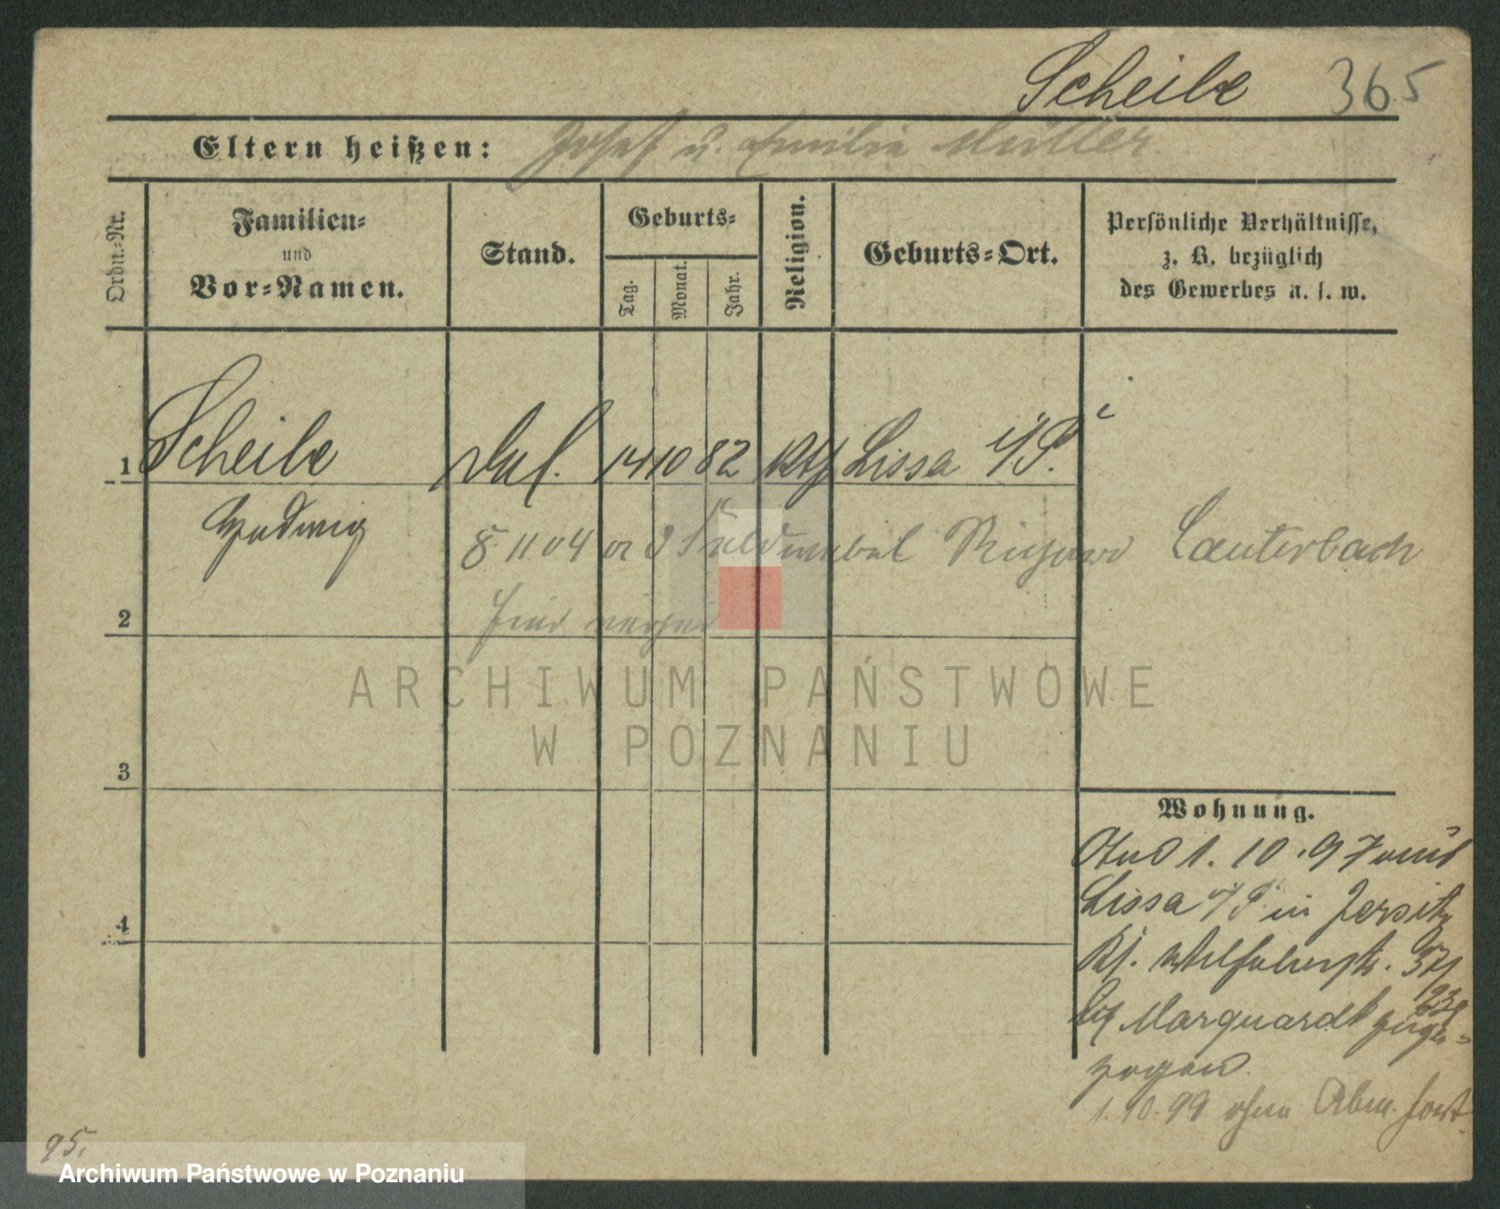 Scheibe 365
Eltern heißen: Josef u. Emilie Müller
Ordn.-Nr.
Familien-
und
Vor-Namen.
Stand.
Geburts-
Tag.
Monat.
Jahr.
Religion.
Geburts-Ort.
Persönliche Verhältnisse,
z. B. bezüglich
des Gewerbes u. s. w.
1 Scheibe 14 10 82 Kth Lissa i/P.
Hedwig
8.11.04 Richard Lauterbach
2
3
4
Wohnung.
1.10.97 aus
Lissa i/P in Jersitz
37
bei Marquardt zuge-
zogen.
1.10.99 ohne Abm. fort.
95.
ARCHIWUM PAŃSTWOWE
W POZNANIU
Archiwum Państwowe w Poznaniu